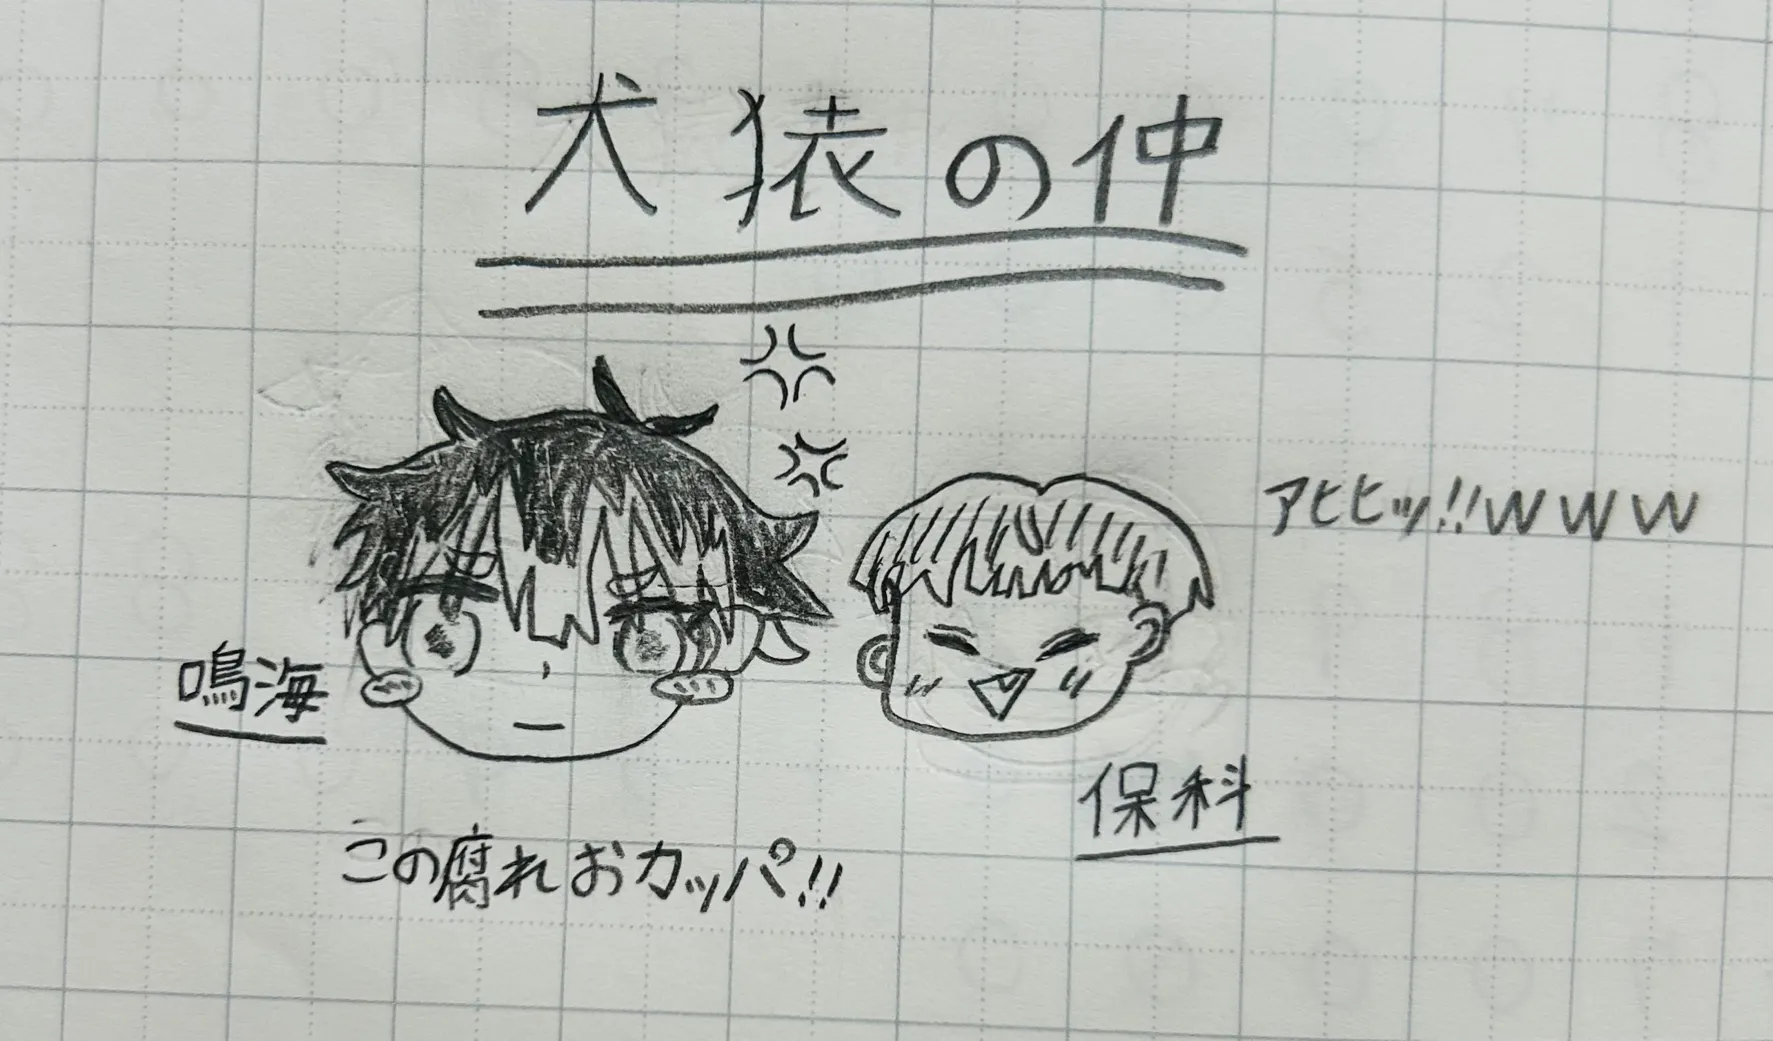 犬猿の仲
アヒヒッ!!www
鳴海
保科
この腐れおカッパ!!